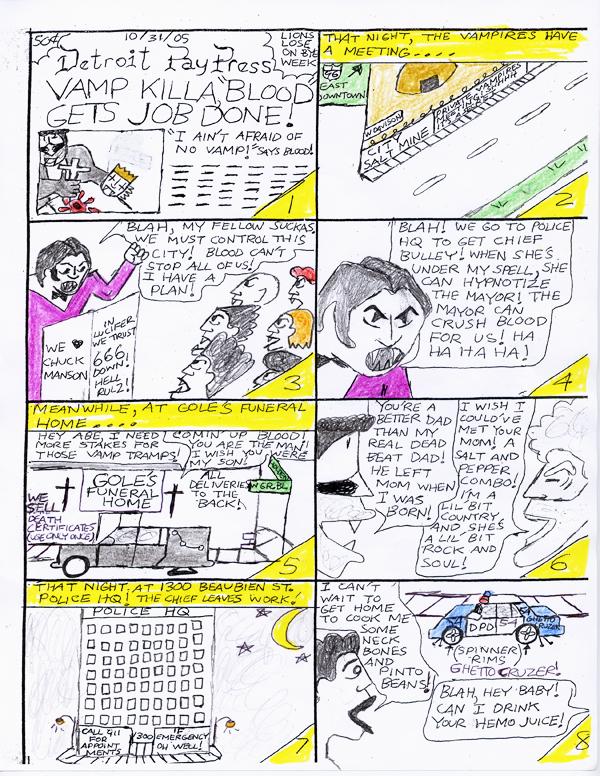 50¢
10/31/05
LIONS
LOSE
ON BYE
WEEK
Detroit PayPress
VAMP KILLA "BLOOD"
GETS JOB DONE!
"I AIN'T AFRAID OF
NO VAMP!" SAYS BLOOD!
1
THAT NIGHT, THE VAMPIRES HAVE
A MEETING....
EAST
DOWNTOWN
W DAVISON
CIT
SALT MINE
PRIVATE VAMPIRES
2
BLAH, MY FELLOW SUCKAS,
WE MUST CONTROL THIS
CITY! BLOOD CAN'T
STOP ALL OF US!
I HAVE A
PLAN!
WE ♥
CHUCK
MANSON
IN
LUCIFER
WE TRUST
666,
DOWN!
HELL
RULZ!
3
BLAH! WE GO TO POLICE
HQ TO GET CHIEF
BULLEY! WHEN SHE'S
UNDER MY SPELL, SHE
CAN HYPNOTIZE
THE MAYOR! THE
MAYOR CAN
CRUSH BLOOD
FOR US! HA
HA HA HA!
4
MEANWHILE, AT GOLE'S FUNERAL
HOME ....
HEY ABE, I NEED
MORE STAKES FOR
THOSE VAMP TRAMPS!
COMIN' UP BLOOD!
YOU ARE THE MAN!
I WISH YOU WERE
MY SON!
GOLE'S
FUNERAL
HOME
ALL
DELIVERIES
TO THE
BACK!
W GR. BL.
WE
SELL
DEATH
CERTIFICATES
(USE ONLY ONCE)
5
YOU'RE A
BETTER DAD
THAN MY
REAL DEAD
BEAT DAD!
HE LEFT
MOM WHEN
I WAS
BORN!
I WISH I
COULD'VE
MET YOUR
MOM! A
SALT AND
PEPPER
COMBO!
I'M A
LIL' BIT
COUNTRY
AND SHE'S
A LIL' BIT
ROCK AND
SOUL!
6
THAT NIGHT, AT 1300 BEAUBIEN ST.
POLICE HQ! THE CHIEF LEAVES WORK!
POLICE HQ
CALL 411
FOR
APPOINT
MENTS
1300
IF
EMERGENCY
OH WELL!
7
I CAN'T
WAIT TO
GET HOME
TO COOK ME
SOME
NECK
BONES
AND
PINTO
BEANS!
54
DPD
54
GHETTO
CRUZER
SPINNER
RIMS
GHETTO CRUZER!
BLAH, HEY BABY!
CAN I DRINK
YOUR HEMO JUICE!
8